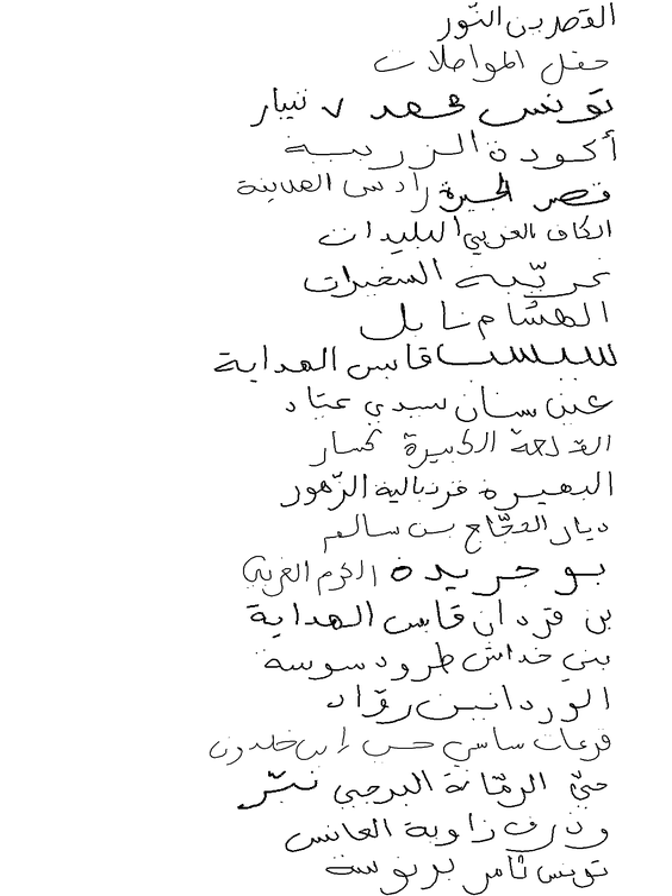 القصرين النّور
حقل المواصلات
تونس محمد ٧
أكودة الزريبة
قصر الجيرة رادس المدينة
الكاف الغربي البليدات
نحريّبة السفيرات
الهشام نابل
سبسب قابس الهداية
عين سنان سيدي عيّاد
القلعة الكبيرة كسار
البهيرة قرنبالية الزّهور
ديار الحجّاج بن سالم
بوجريدة الكرم الغربي
بن قردان قابس الهداية
بني خداش طرود سوسة
الوردانين روّاد
قرعات ساسي حسن ابن خلدون
حيّ الرمّانة البرجين
وذرف زاوية العانس
تونس ثامر برنوسة